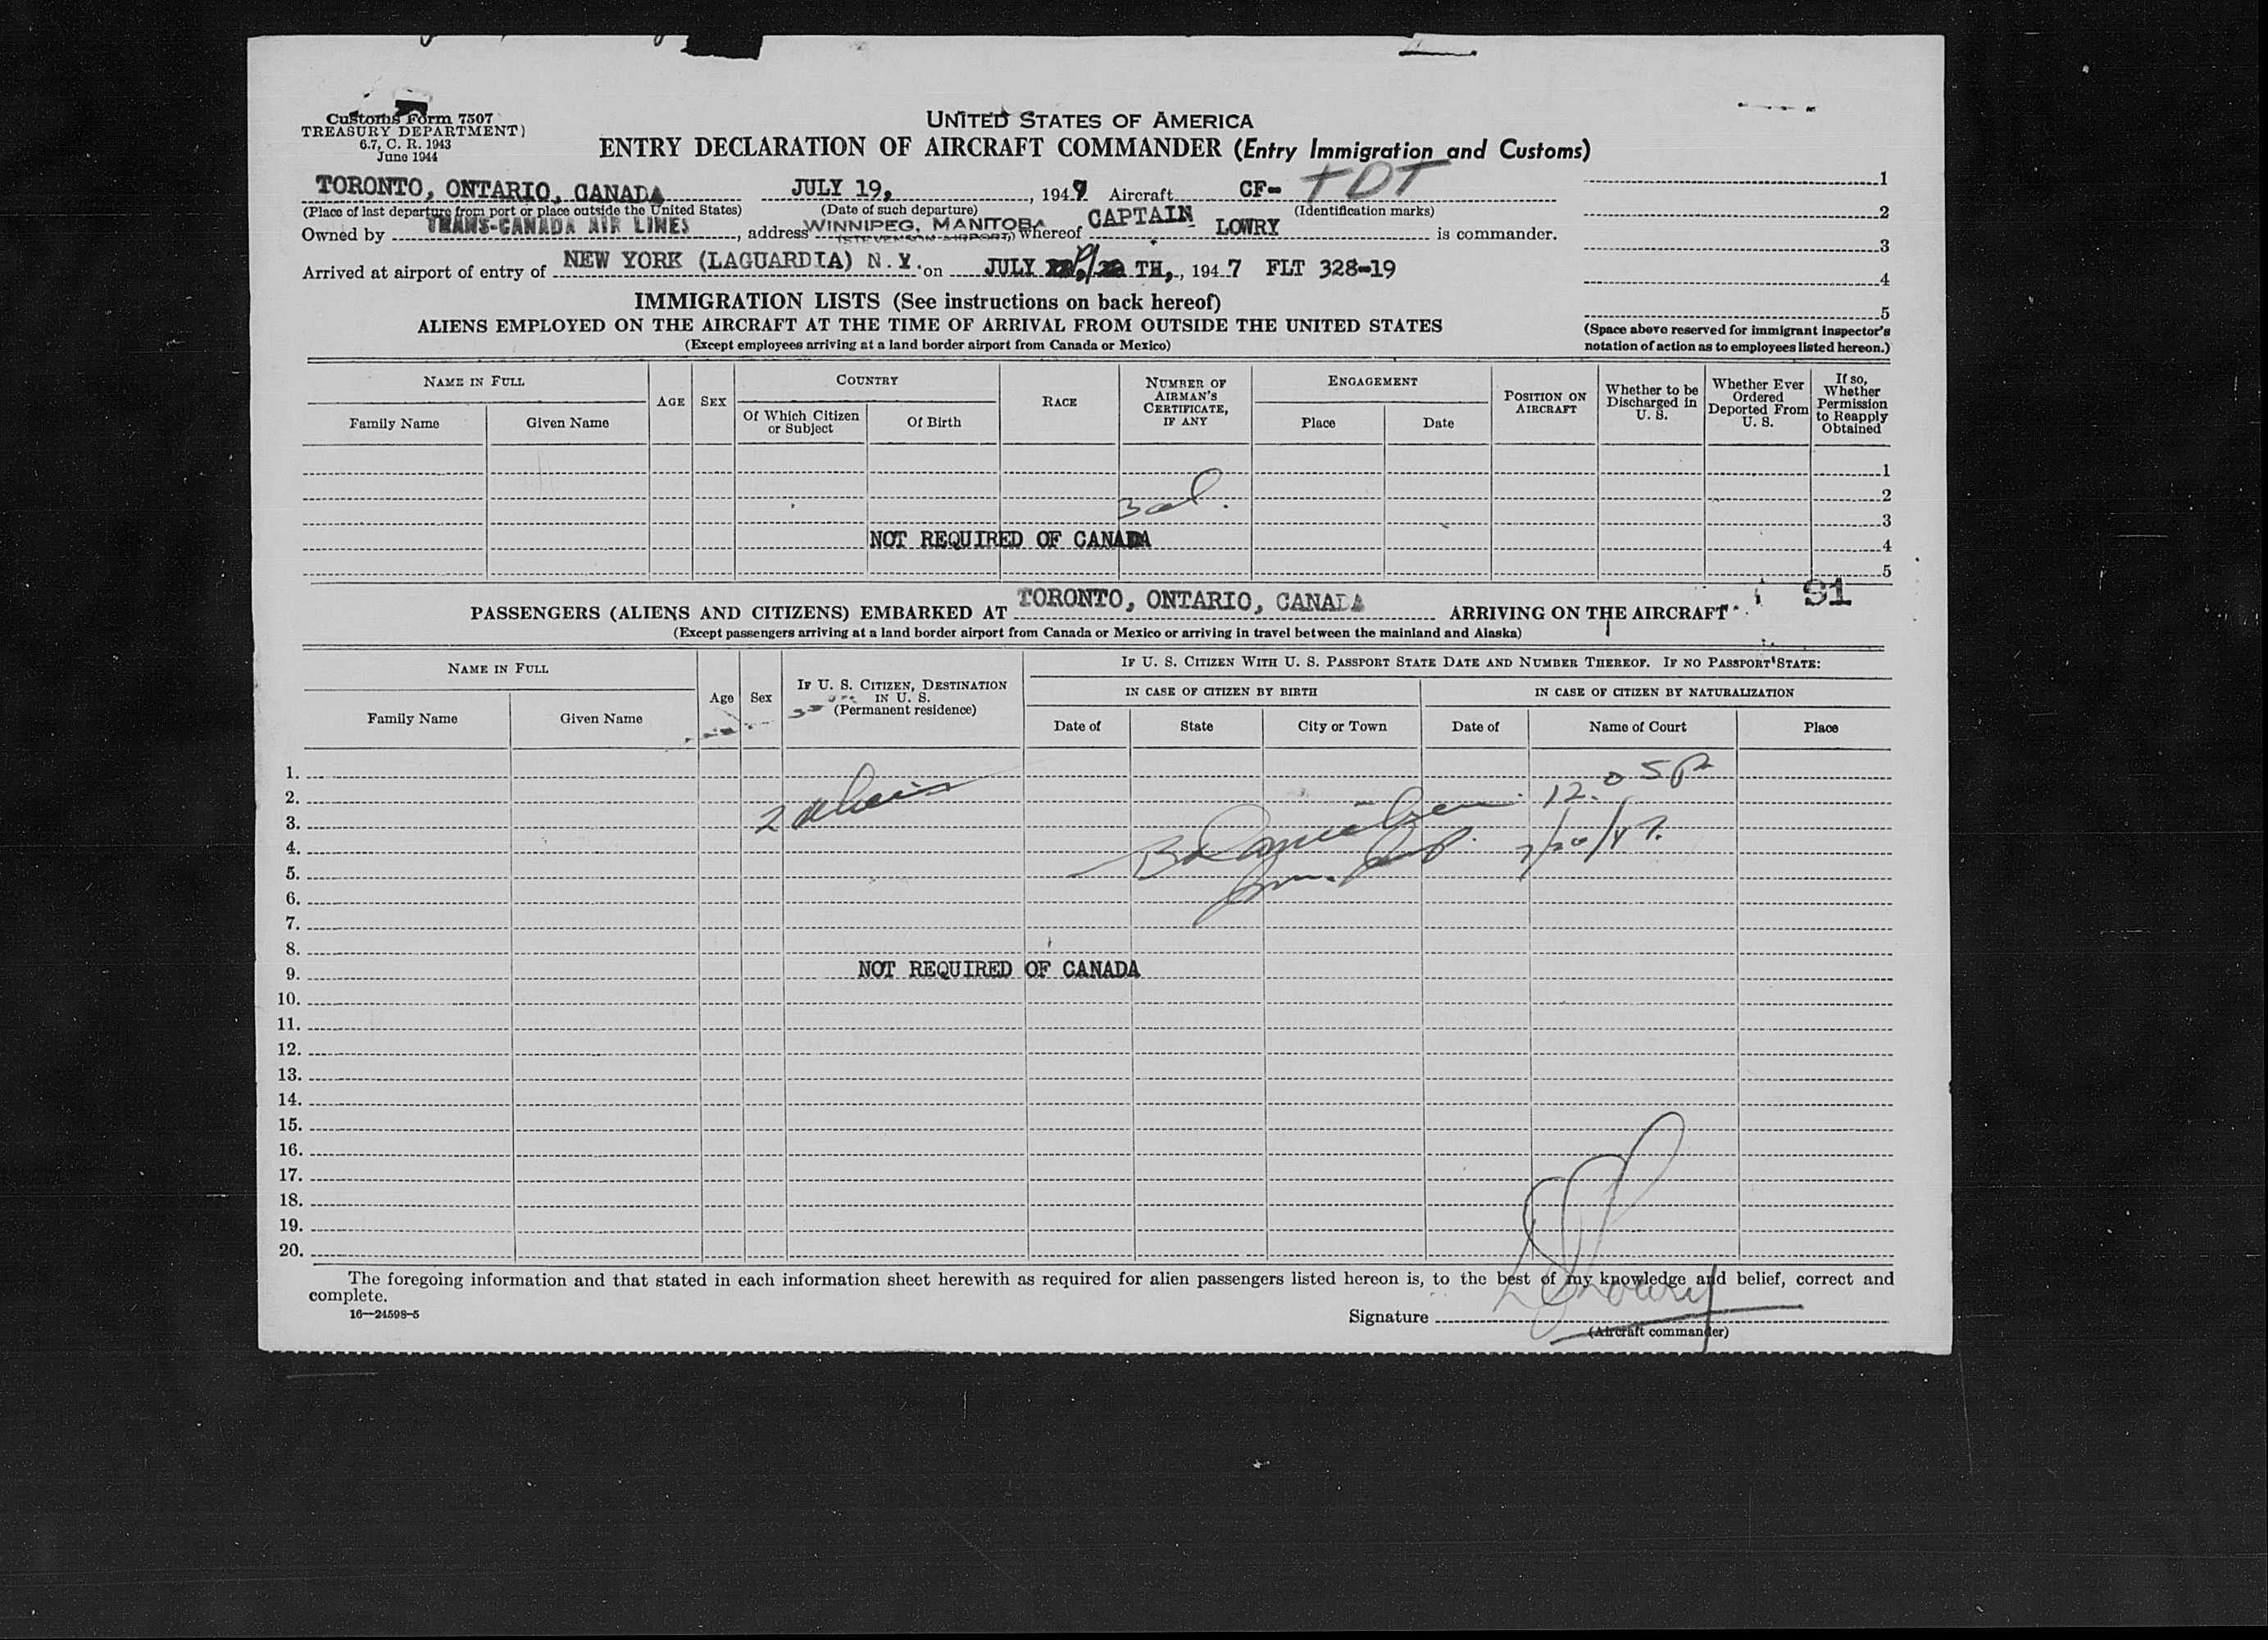 Customs Form 7507
TREASURY DEPARTMENT)
6.7, C. R. 1943
June 1944
UNITED STATES OF AMERICA
ENTRY DECLARATION OF AIRCRAFT COMMANDER (Entry Immigration and Customs)
TORONTO, ONTARIO, CANADA JULY 19, , 1947 Aircraft CF- TDT
(Place of last departure from port or place outside the United States) (Date of such departure) (Identification marks)
Owned by TRANS-CANADA AIR LINES, address WINNIPEG, MANITOBA (STEVENSON AIRPORT,) whereof CAPTAIN LOWRY is commander.
Arrived at airport of entry of NEW YORK (LAGUARDIA) N.Y. on JULY TH,, 1947 FLT 328-19
1
2
3
4
5
(Space above reserved for immigrant inspector's
notation of action as to employees listed hereon.)
IMMIGRATION LISTS (See instructions on back hereof)
ALIENS EMPLOYED ON THE AIRCRAFT AT THE TIME OF ARRIVAL FROM OUTSIDE THE UNITED STATES
(Except employees arriving at a land border airport from Canada or Mexico)
NAME IN FULL
Family Name Given Name
AGE SEX
COUNTRY
Of Which Citizen or Subject Of Birth
RACE
NUMBER OF AIRMAN'S CERTIFICATE, IF ANY
ENGAGEMENT
Place Date
POSITION ON AIRCRAFT
Whether to be Discharged in U. S.
Whether Ever Ordered Deported From U. S.
If so, Whether Permission to Reapply Obtained
1
2
3
NOT REQUIRED OF CANADA
4
5
91
PASSENGERS (ALIENS AND CITIZENS) EMBARKED AT TORONTO, ONTARIO, CANADA ARRIVING ON THE AIRCRAFT
(Except passengers arriving at a land border airport from Canada or Mexico or arriving in travel between the mainland and Alaska)
NAME IN FULL
Family Name Given Name
Age Sex
IF U. S. CITIZEN, DESTINATION IN U. S. (Permanent residence)
IF U. S. CITIZEN WITH U. S. PASSPORT STATE DATE AND NUMBER THEREOF. IF NO PASSPORT STATE:
IN CASE OF CITIZEN BY BIRTH IN CASE OF CITIZEN BY NATURALIZATION
Date of State City or Town Date of Name of Court Place
1. 12.05 p
2.
3. 2 aliens
4. 7/20/47.
5.
6.
7.
8.
9. NOT REQUIRED OF CANADA
10.
11.
12.
13.
14.
15.
16.
17.
18.
19.
20.
The foregoing information and that stated in each information sheet herewith as required for alien passengers listed hereon is, to the best of my knowledge and belief, correct and
complete.
16—24598-5
Signature Lowry
(Aircraft commander)